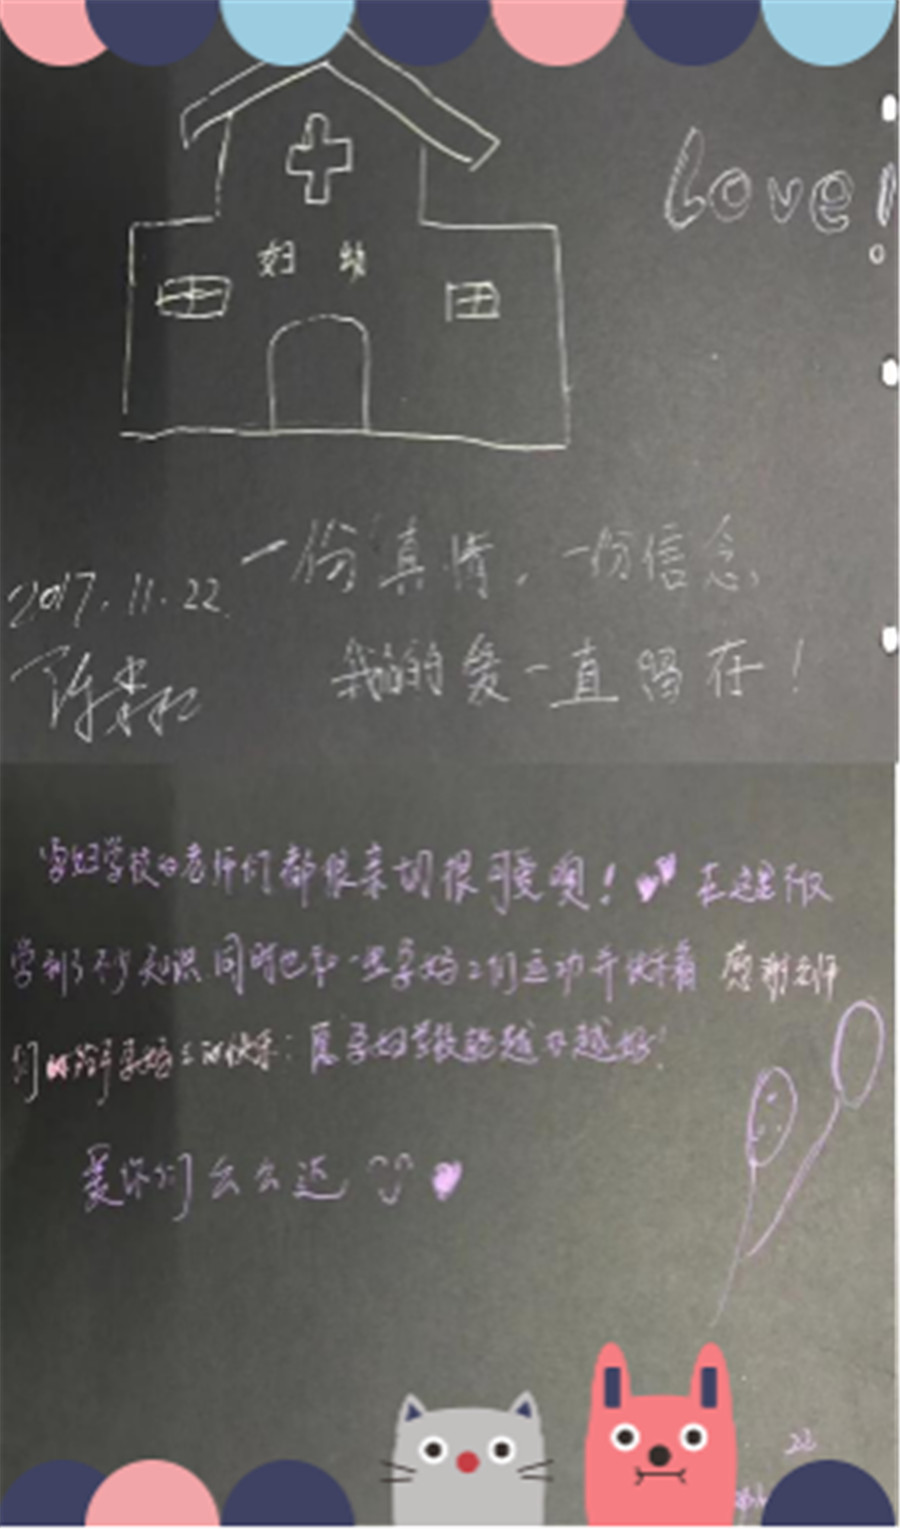 Love!
妇 幼
一份真情,一份信念
2017.11.22
我的爱一直留在!
孕妇学校的老师们都很亲切很可爱呗! 在这里不仅
学到了不少知识 同时也和一些孕妈妈们运动并快乐着 感谢老师
们 孕妈 的快乐 孕妇学校能越办越好!
爱你们 么么
22